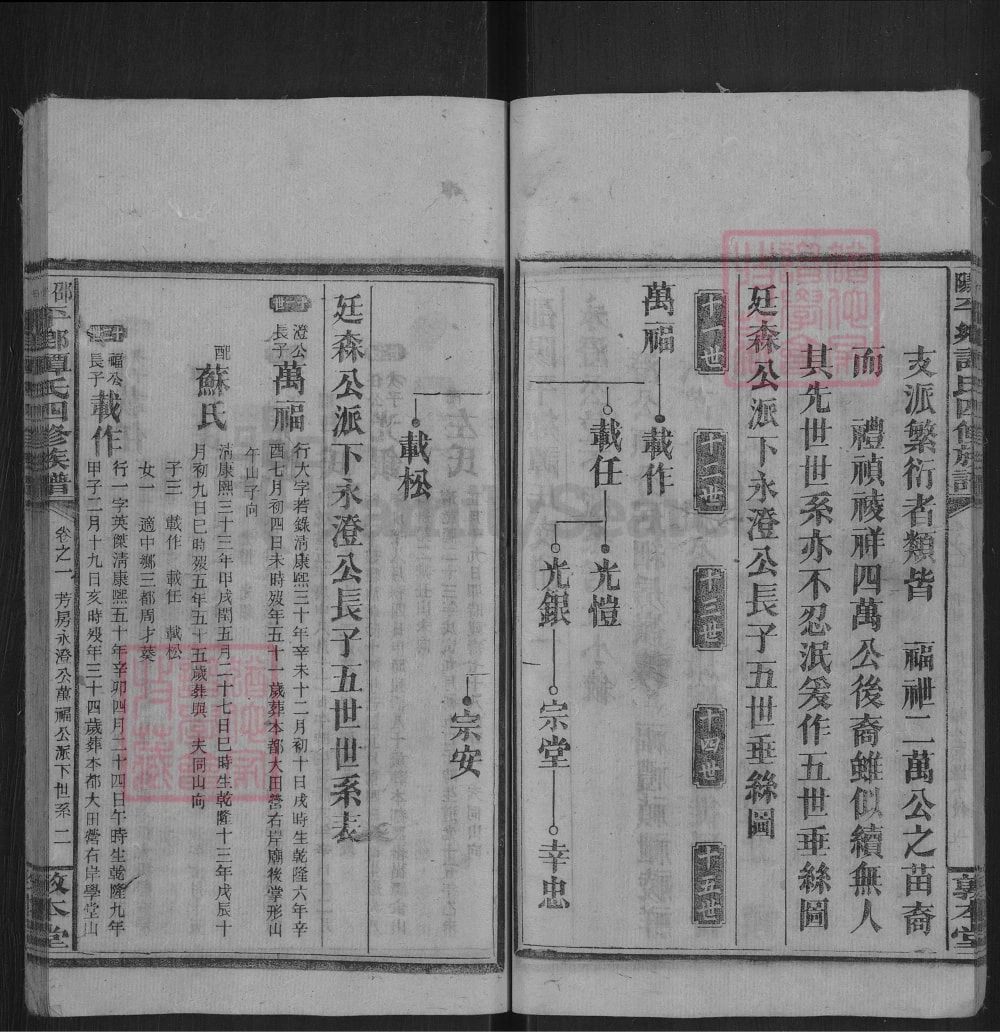 支派繁衍者類皆 福祉二萬公之苗裔
而 禮禎祾祥四萬公後裔雖似續無人
其先世世系亦不忍泯爰作五世垂絲圖
廷森公派下永澄公長子五世垂絲圖
十一世 十二世 十三世 十四世 十五世
萬福 載作
載任 光愷
光銀 宗堂 幸忠
宗安
載松
廷森公派下永澄公長子五世世系表
十一世
澄公長子 萬福 行大字若錄淸康熙三十年辛未十二月初十日戌時生乾隆六年辛
酉七月初四日未時歿年五十一歲葬本都大田營右岸廟後掌形山
午山子向
配 蘇氏 淸康熙三十三年甲戌閏五月二十七日巳時生乾隆十三年戊辰十
月初九日巳時歿五年五十五歲葬與 夫同山向
子三 載作 載任 載松
女一 適中鄉三都周才葵
十二世
福公長子 載作 行一字英傑淸康熙五十年辛卯四月二十四日午時生乾隆九年
甲子二月十九日亥時歿年三十四歲葬本都大田營右岸學堂山
邵 平鄉譚氏四修族譜 卷之一 芳房永澄公萬福公派下世系 二 敦本堂